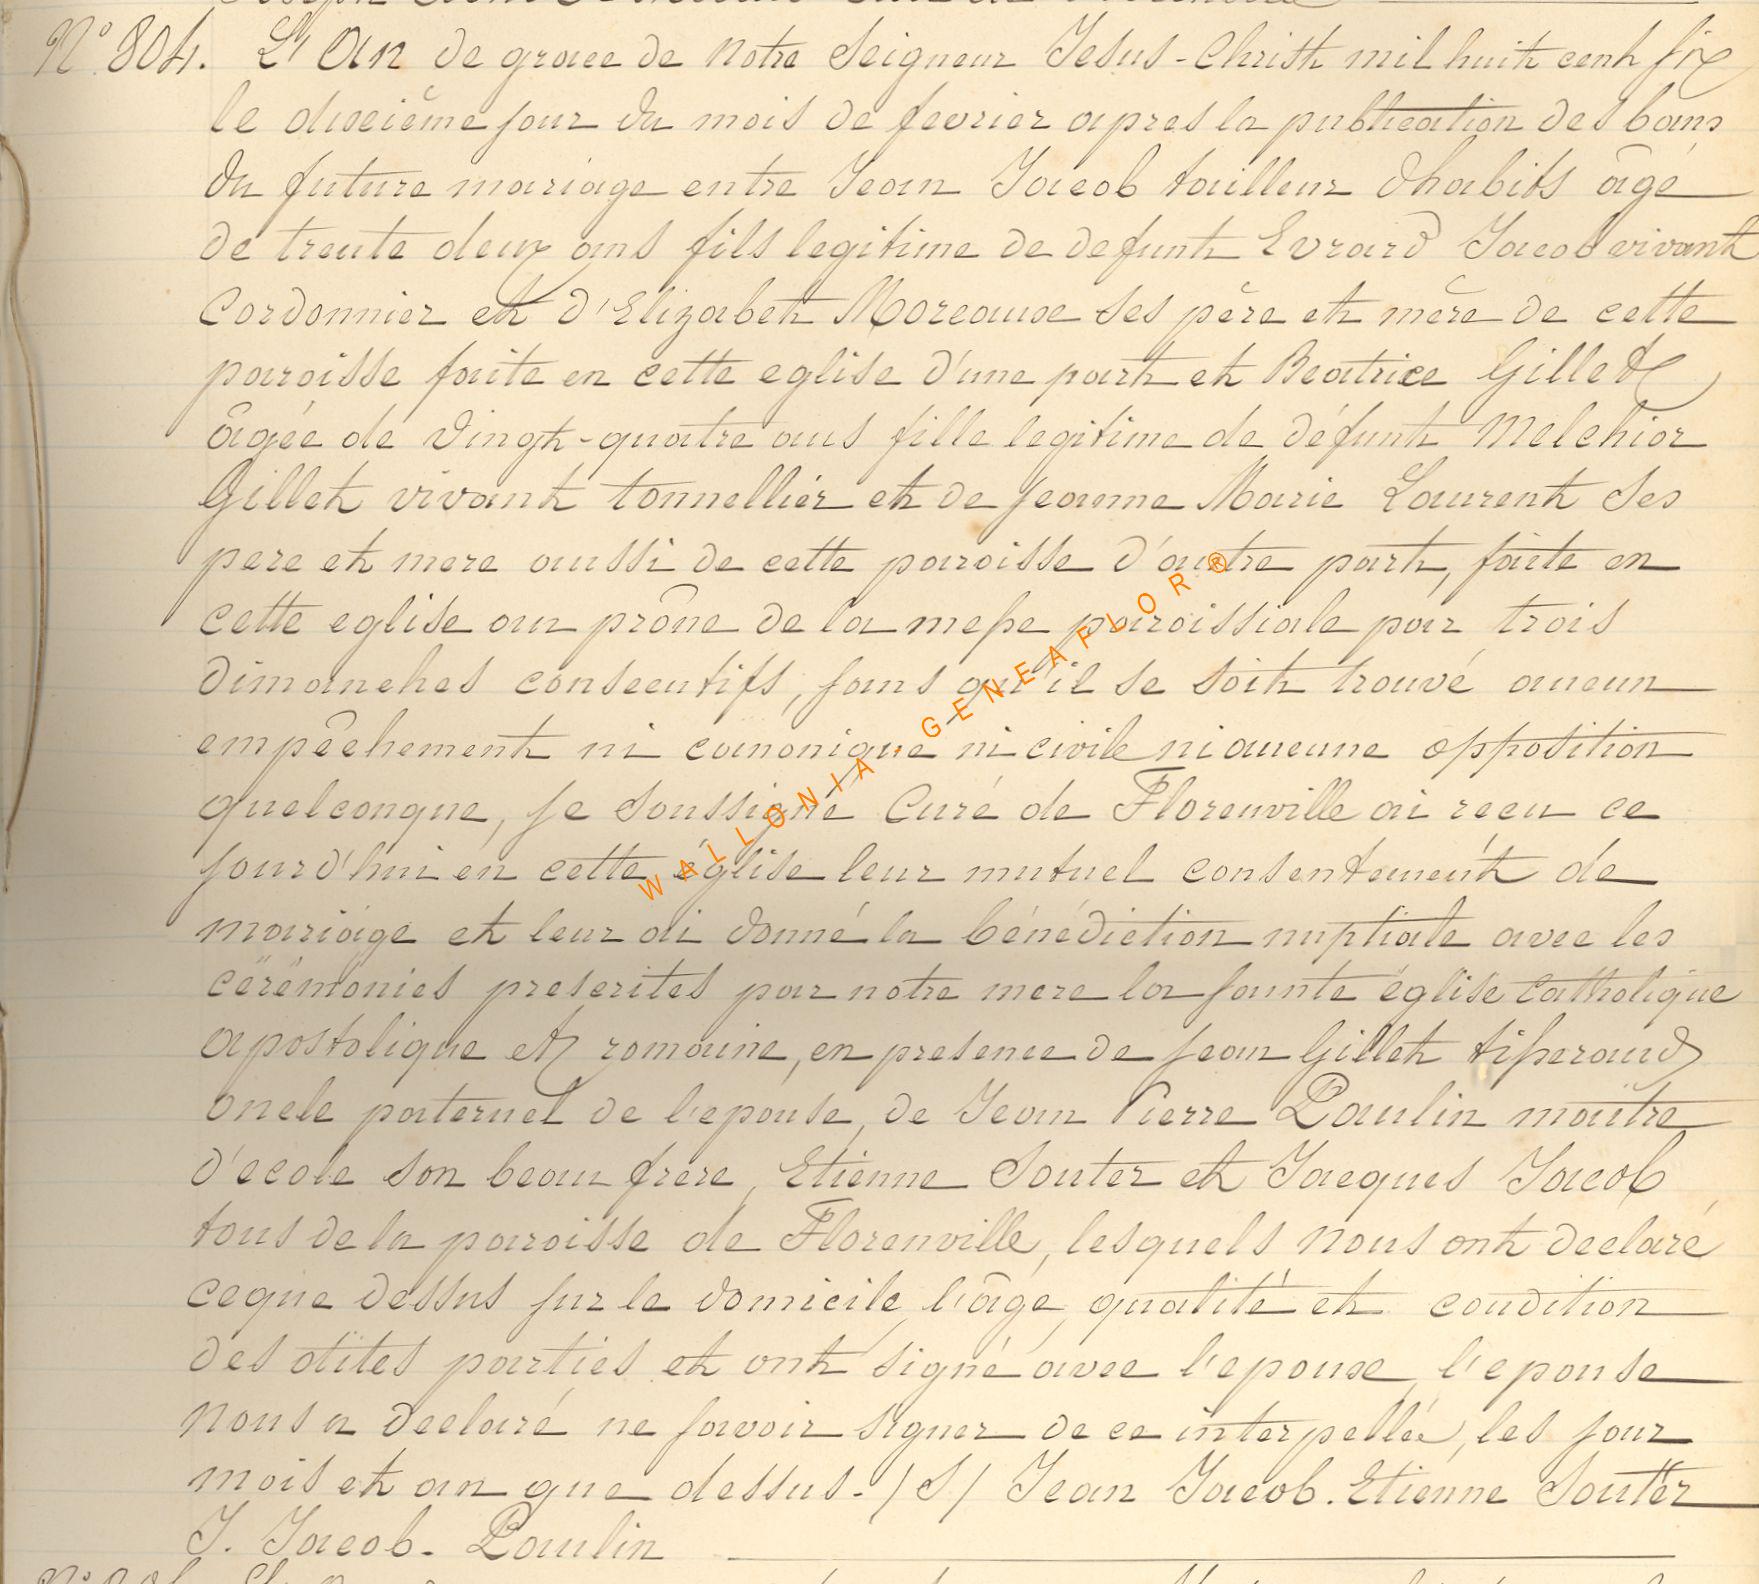 N° 804. L'An de grace de Notre Seigneur Jesus-Christ mil huit cent six
le dixeième jour du mois de fevrier apres la publication des bans
du future mariage entre Jean Jacob tailleur d'habits âgé
de trente deux ans fils legitime de defunt Evrard Jacob vivant
Cordonnier et d'Elizabet Moreaux ses père et mère de cette
paroisse faite en cette eglise d'une part et Beatrice Gillet
âgée de vingt-quatre ans fille legitime de défunt Melchior
Gillet vivant tonnellier et de jeanne Marie Laurent ses
pere et mere aussi de cette paroisse d'autre part, faite en
cette eglise au prône de la messe paroissiale par trois
dimanches consecutifs, sans qu'il se soit trouvé aucun
empêchement ni canonique ni civile ni aucune opposition
quelconque, je soussigné Curé de Florenville ai recu ce
jourd'hui en cette église leur mutuel consentement de
mariage et leur ai donné la bénédiction nuptiale avec les
cérémonies prescrites par notre mere la sainte église Catholique
apostolique et romaine, en presence de jean Gillet tisserand
oncle paternel de l'epouse, de Jean Pierre Paulin maître
d'ecole son beau frere, Etienne Souter et Jacques Jacob
tous de la paroisse de Florenville, lesquels nous ont declaré
ceque dessus sur le domicile, l'âge, qualité et condition
des dites parties et ont signé avec l'epoux, l'epouse
nous a declaré ne savoir signer de ce interpellée, les jour
mois et an que dessus. /S/ Jean Jacob. Etienne Souter
J. Jacob. Paulin
WALLONIA - GENEAFLOR ®